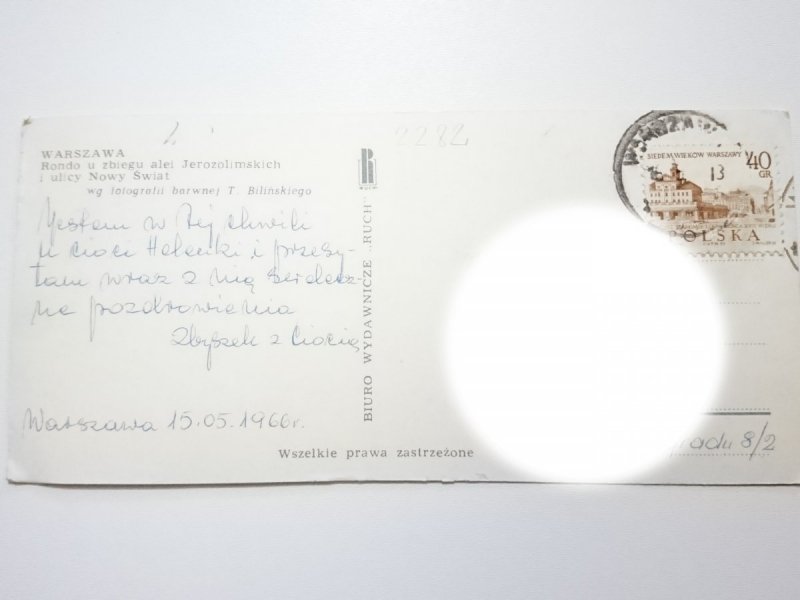 2282
WARSZAWA
Rondo u zbiegu alei Jerozolimskich
i ulicy Nowy Świat
wg fotografii barwnej T. Bilińskiego
Jestem w tej chwili
u cioci Helenki i przesy-
łam wraz z nią serdecz-
ne pozdrowienia
Zbyszek z Ciocią
Warszawa 15.05.1966r.
BIURO WYDAWNICZE „RUCH"
Wszelkie prawa zastrzeżone
SIEDEM WIEKÓW WARSZAWY
40
GR
13
POLSKA
gradu 8/2